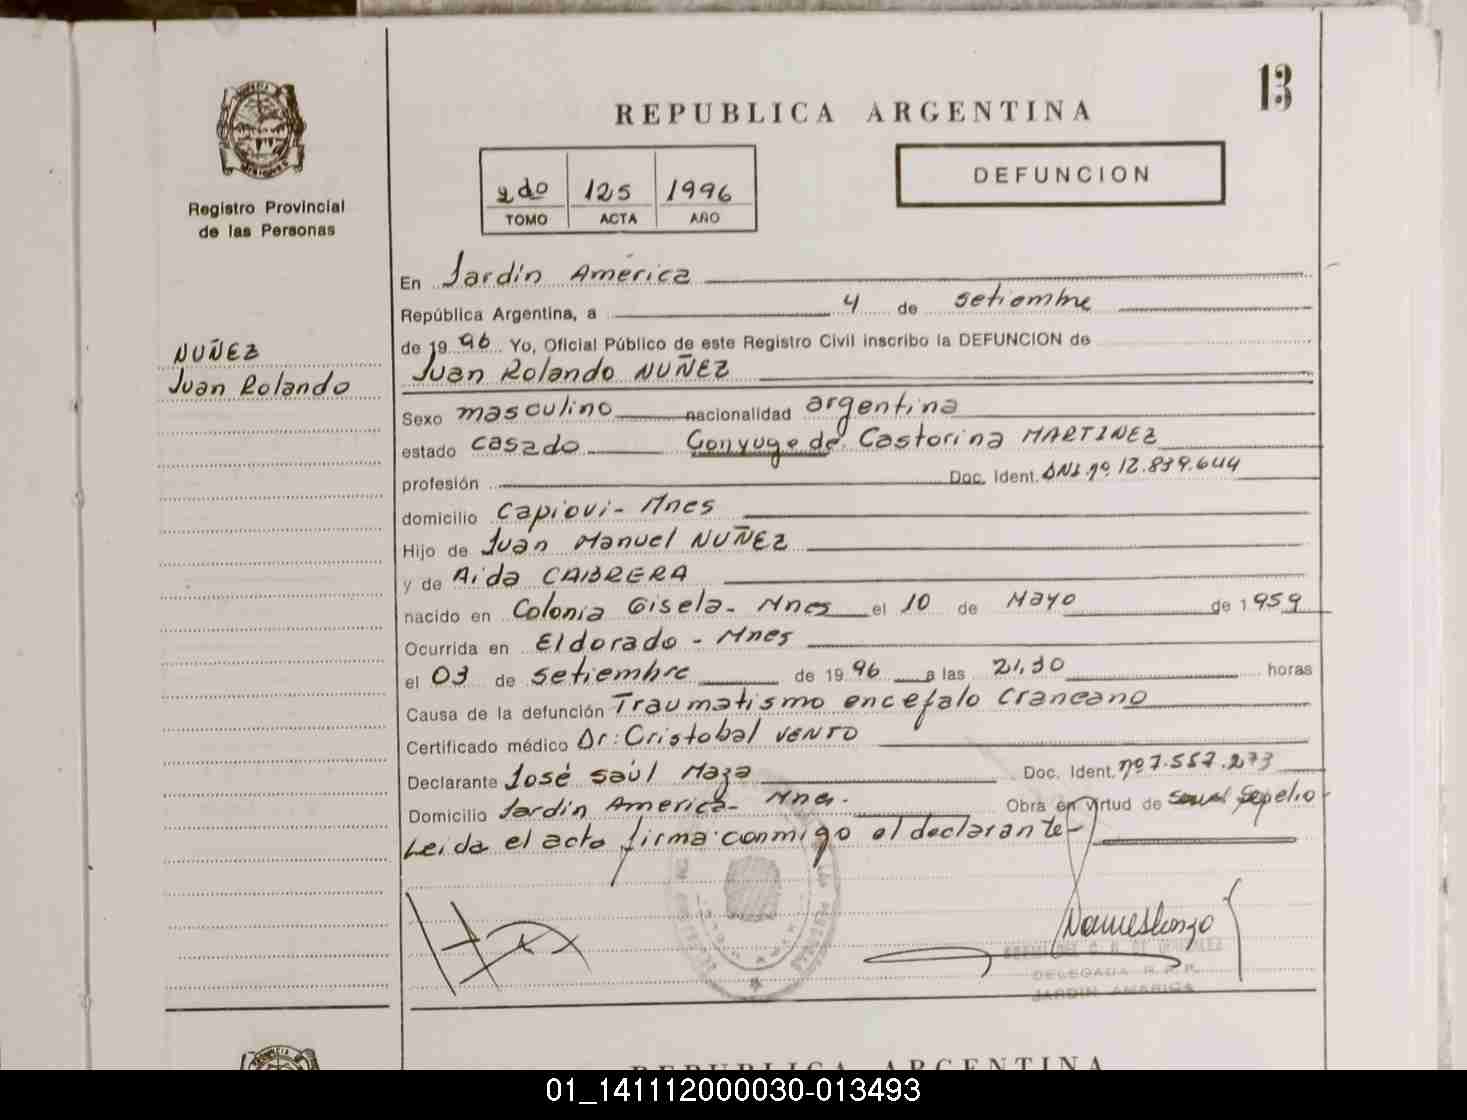 13
REPUBLICA ARGENTINA
Registro Provincial
de las Personas
2do 125 1996
TOMO ACTA AÑO
DEFUNCION
NUÑEZ
Juan Rolando
En Jardín América
República Argentina, a 4 de setiembre
de 1996 Yo, Oficial Público de este Registro Civil inscribo la DEFUNCION de
Juan Rolando NUÑEZ
Sexo masculino nacionalidad argentina
estado casado Conyuge de Castorina MARTINEZ
profesión Doc. Ident. DNI nº 12.839.644
domicilio Capiovi - Mnes
Hijo de Juan Manuel NUÑEZ
y de Aida CABRERA
nacido en Colonia Gisela - Mnes el 10 de Mayo de 1959
Ocurrida en Eldorado - Mnes
el 03 de setiembre de 1996 a las 21,30 horas
Causa de la defunción Traumatismo encefalo craneano
Certificado médico Dr: Cristobal VENTO
Declarante José Saúl Maza Doc. Ident. nº 7.557.273
Domicilio Jardín América - Mnes. Obra en virtud de Sepelio -
Leida el acta firma conmigo el declarante -
DELEGADA R.P.P.
JARDIN AMERICA
REPUBLICA ARGENTINA
01_141112000030-013493